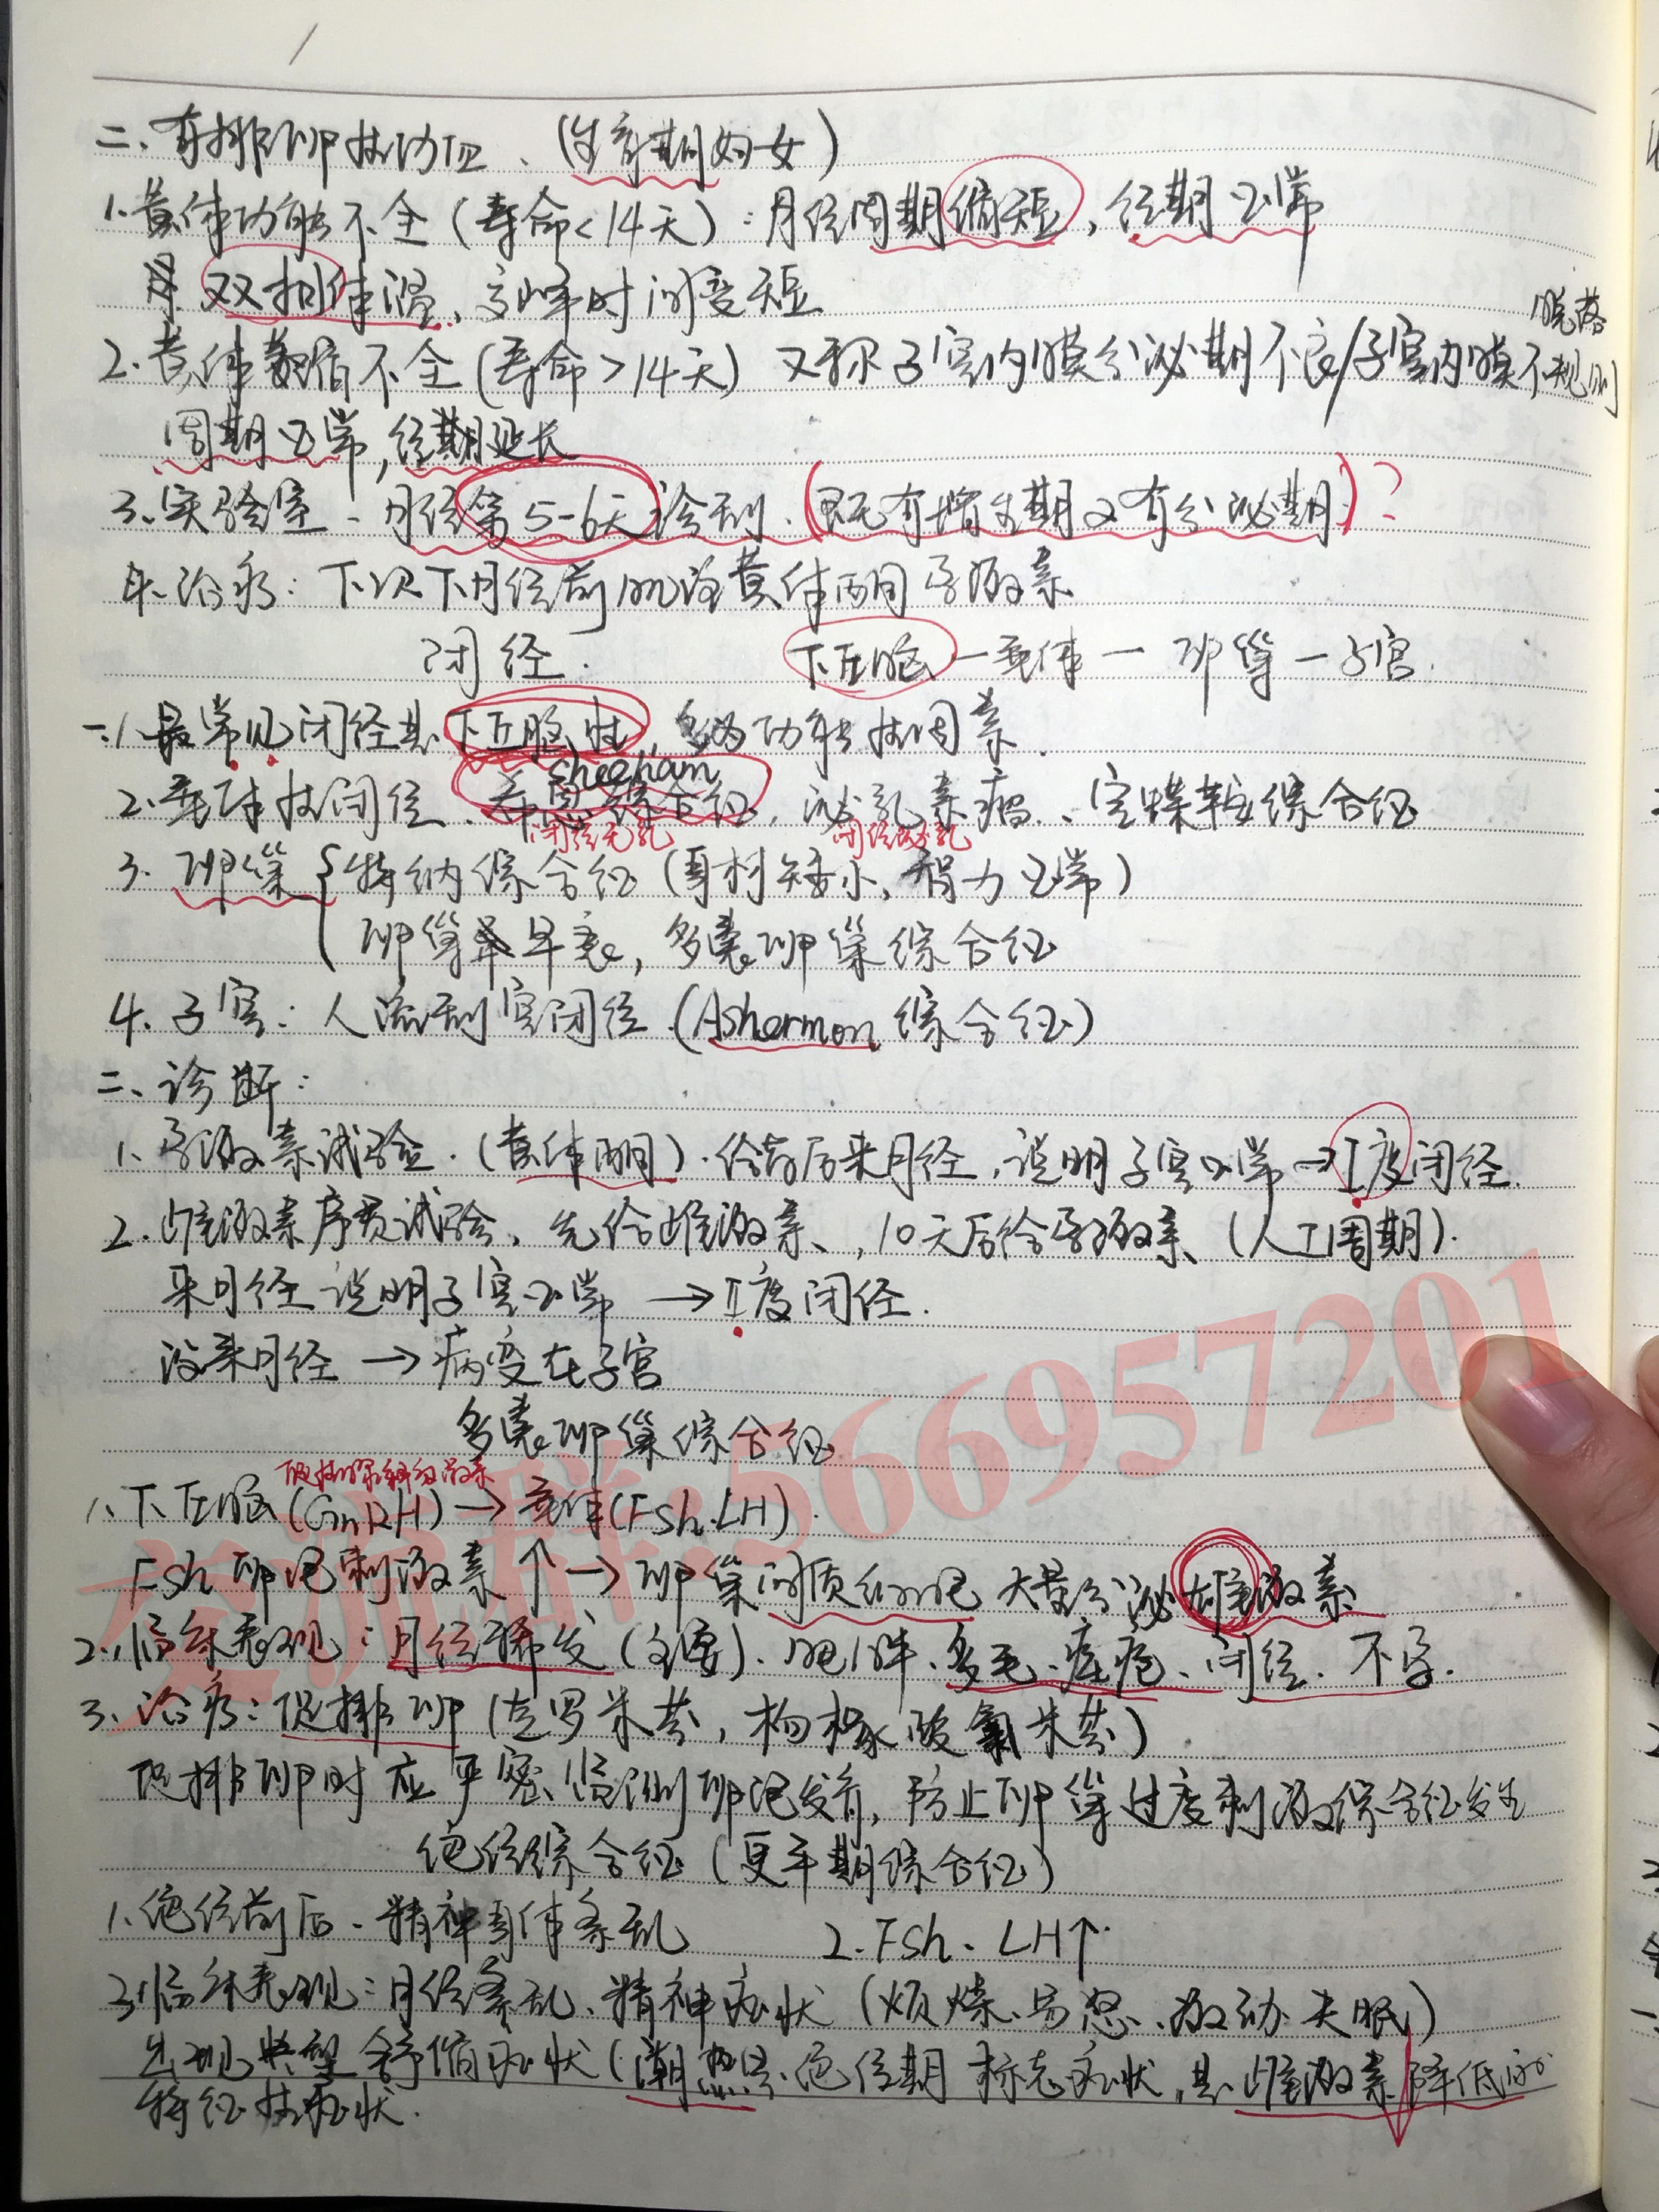 二、有排卵性功血、(生育期妇女)
1.黄体功能不全(寿命<14天):月经周期缩短,经期正常
双相体温,高峰时间变短
脱落
2.黄体萎缩不全(寿命>14天)又称子宫内膜分泌期不良/子宫内膜不规则
周期正常,经期延长
3、实验室、月经第5-6天诊刮、(既有增生期又有分泌期)?
4.治疗:下次下月经前肌注黄体酮 孕激素
闭经. 下丘脑—垂体—卵巢—子宫.
一.1.最常见闭经是下丘脑性,多为功能性因素.
sheeham
2.垂体性闭经、希恩综合征,泌乳素瘤、空蝶鞍综合征
闭经无乳 闭经泌乳
3. 卵巢{特纳综合征(身材矮小,智力正常)
卵巢早衰,多囊卵巢综合征
4.子宫:人流刮宫闭经.(Ashermon综合征)
二、诊断:
1、孕激素试验.(黄体酮).给药后来月经,说明子宫正常→I度闭经.
2.雌激素序贯试验、先给雌激素、,10天后给孕激素(人工周期).
来月经说明子宫正常→II度闭经.
没来月经→病变在子宫
多囊卵巢综合征
促性腺释放激素
1、下丘脑(GnRH)→垂体(Fsh.LH).
Fsh卵泡刺激素↑→卵巢间质细胞大量分泌雄激素
2.临床表现:月经稀发(主要)、肥胖、多毛、痤疮、闭经、不孕.
3、治疗:促排卵(克罗米芬,枸橼酸氯米芬)
促排卵时应严密监测卵泡发育,防止卵巢过度刺激综合征发生
绝经综合征(更年期综合征)
1、绝经前后、精神身体紊乱 2.Fsh、LH↑.
3.临床表现:月经紊乱、精神症状(烦燥、易怒、激动、失眠)
出现典型舒缩症状(潮热是绝经期标志症状,是雌激素降低的
特征性症状.
交流群:566957201